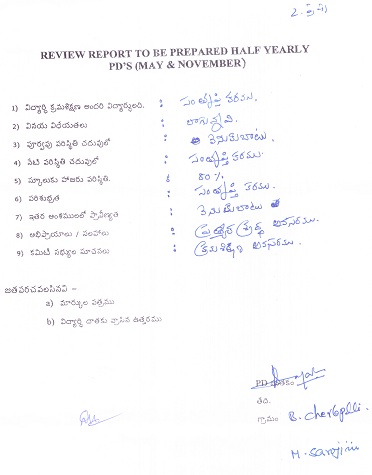 REVIEW REPORT TO BE PREPARED HALF YEARLY
PD'S (MAY & NOVEMBER)
1) విద్యార్థి క్రమశిక్షణ అందరి విద్యార్థులది. : సంతృప్తి కరము.
2) వినయ విధేయతలు : బాగున్నవి.
3) పూర్వపు పరిస్థితి చదువులో : వెనుకబాటు.
4) నేటి పరిస్థితి చదువులో : సంతృప్తి కరము.
5) స్కూలుకు హాజరు పరిస్థితి. : 80 %
6) పరిశుభ్రత : సంతృప్తి కరము.
7) ఇతర అంశములలో ప్రావీణ్యత : వెనుకబాటు
8) అభిప్రాయాలు / సలహాలు : ప్రత్యేక శ్రద్ధ అవసరము.
9) కమిటీ సభ్యుల సూచనలు : క్రమశిక్షణ అవసరము.
జతపరచవలసినవి –
a) మార్కుల పత్రము
b) విద్యార్థి దాతకు వ్రాసిన ఉత్తరము
PD సంతకం
తేది.
గ్రామం B. Cherlopalli.
M. Sarojini